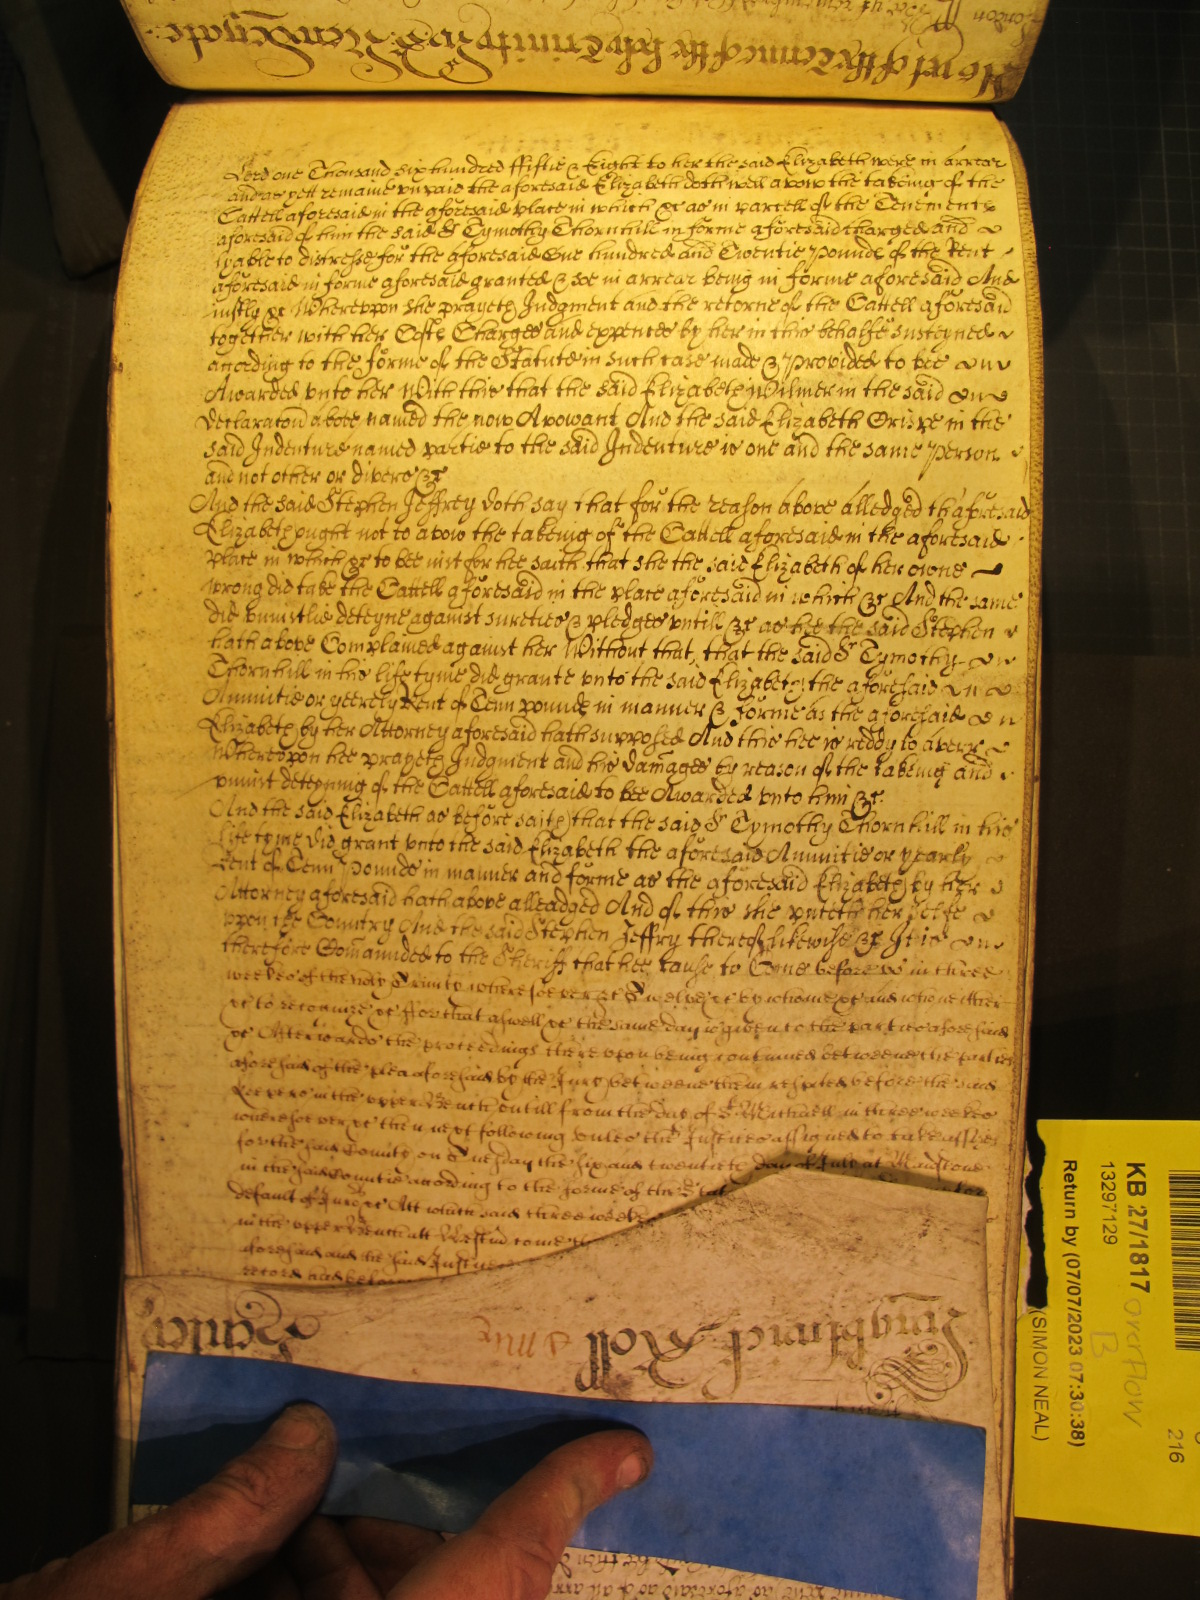 Lord one Thousand six hundred fiftie & Eight to her the said Elizabeth were in arrear
and as yett remaine vnpaid the aforesaid Elizabeth doth well avow the takeing of the
Cattell aforesaid in the aforesaid place in which &c as in parcell of the Tenements
aforesaid of him the said Sr Tymothy Thornhill in forme aforesaid charged and
lyable to distresse for the aforesaid One hundred and Twentie Pounds of the Rent
aforesaid in forme aforesaid granted & soe in arrear being in forme aforesaid And
iustly &c Wherevpon she prayeth Judgment and the retorne of the Cattell aforesaid
together with her Costs Charges and expences by her in this behalfe susteyned
acording to the forme of the Statute in such case made & Provided to bee
Awarded vnto her With this that the said Elizabeth Wilmer in the said
Declaration above named the now Avowant And the said Elizabeth in the
said Indenture named partie to the said Indenture is one and the same Person
and not other or divers &c
And the said Stephen Jeffrey doth say that for the reason above alledged thaforesaid
Elizabeth ought not to avow the takeing of the Cattell aforesaid in the aforesaid
place in which &c to bee iust for hee saith that she the said Elizabeth of her owne
wrong did take the Cattell aforesaid in the place aforesaid in which &c And the same
did vniustlie deteyne against sureties & pledges vntill &c as hee the said Stephen
hath above Complained against her Without that, that the said Sr Tymothy
Thornhill in his life tyme did grante vnto the said Elizabeth the aforesaid
Annuitie or yeerely Rent of Tenn pounds in manner & forme as the aforesaid
Elizabeth by her Attorney aforesaid hath supposed And this hee is reddy to averr
Wherevpon hee prayeth Judgment and his damages by reason of the takeing and
vniust deteyning of the Cattell aforesaid to bee Awarded vnto him &c
And the said Elizabeth as before saith that the said Sr Tymothy Thornhill in his
life tyme did grant vnto the said Elizabeth the aforesaid Annuitie or yearly
Rent of Tenn Pounds in manner and forme as the aforesaid Elizabeth by her
Attorney aforesaid hath above alleadged And of this she putteth her selfe
vpon the Country And the said Stephen Jeffry thereof likewise &c It is
therefore Comannded to the Sheriff that hee cause to Come before vs in three
weekes of the holy Trinity wheresoever &c Twelve &c by whome &c and who neither
&c to recognize &c for that aswell &c the same day is given to the parties aforesaid
&c Afterwards the proceedings therevpon being continued betweene the parties
aforesaid of the plea aforesaid by the Jury betweene them respited before the said
Keepers in the vpper Bench vntill from the day of St Michaell in three weekes
wheresoever &c then next following vnles the Justices assigned to take assizes
for the said County on Tuesday the six and twentieth day of July at Maidstone
in the said Countie acording to the forme of the Stat
default of Jurors &c Att which said three weekes
in the vpper Bench att Westm come
aforesaid and the said Justices
record had before
KB 27/1817
13297129
Return by (07/07/2023 07:30:38)
(SIMON NEAL)
overflow
B
216
Roll